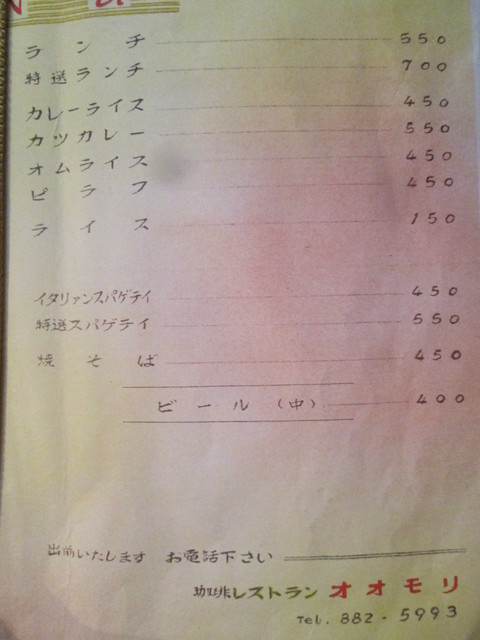 ランチ 550
特送ランチ 700
カレーライス 450
カツカレー 550
オムライス 450
ピラフ 450
ライス 150
イタリアンスパゲテイ 450
特送スパゲテイ 550
焼そば 450
ビール(中) 400
出前いたします お電話下さい
珈琲レストラン オオモリ
Tel. 882-5993